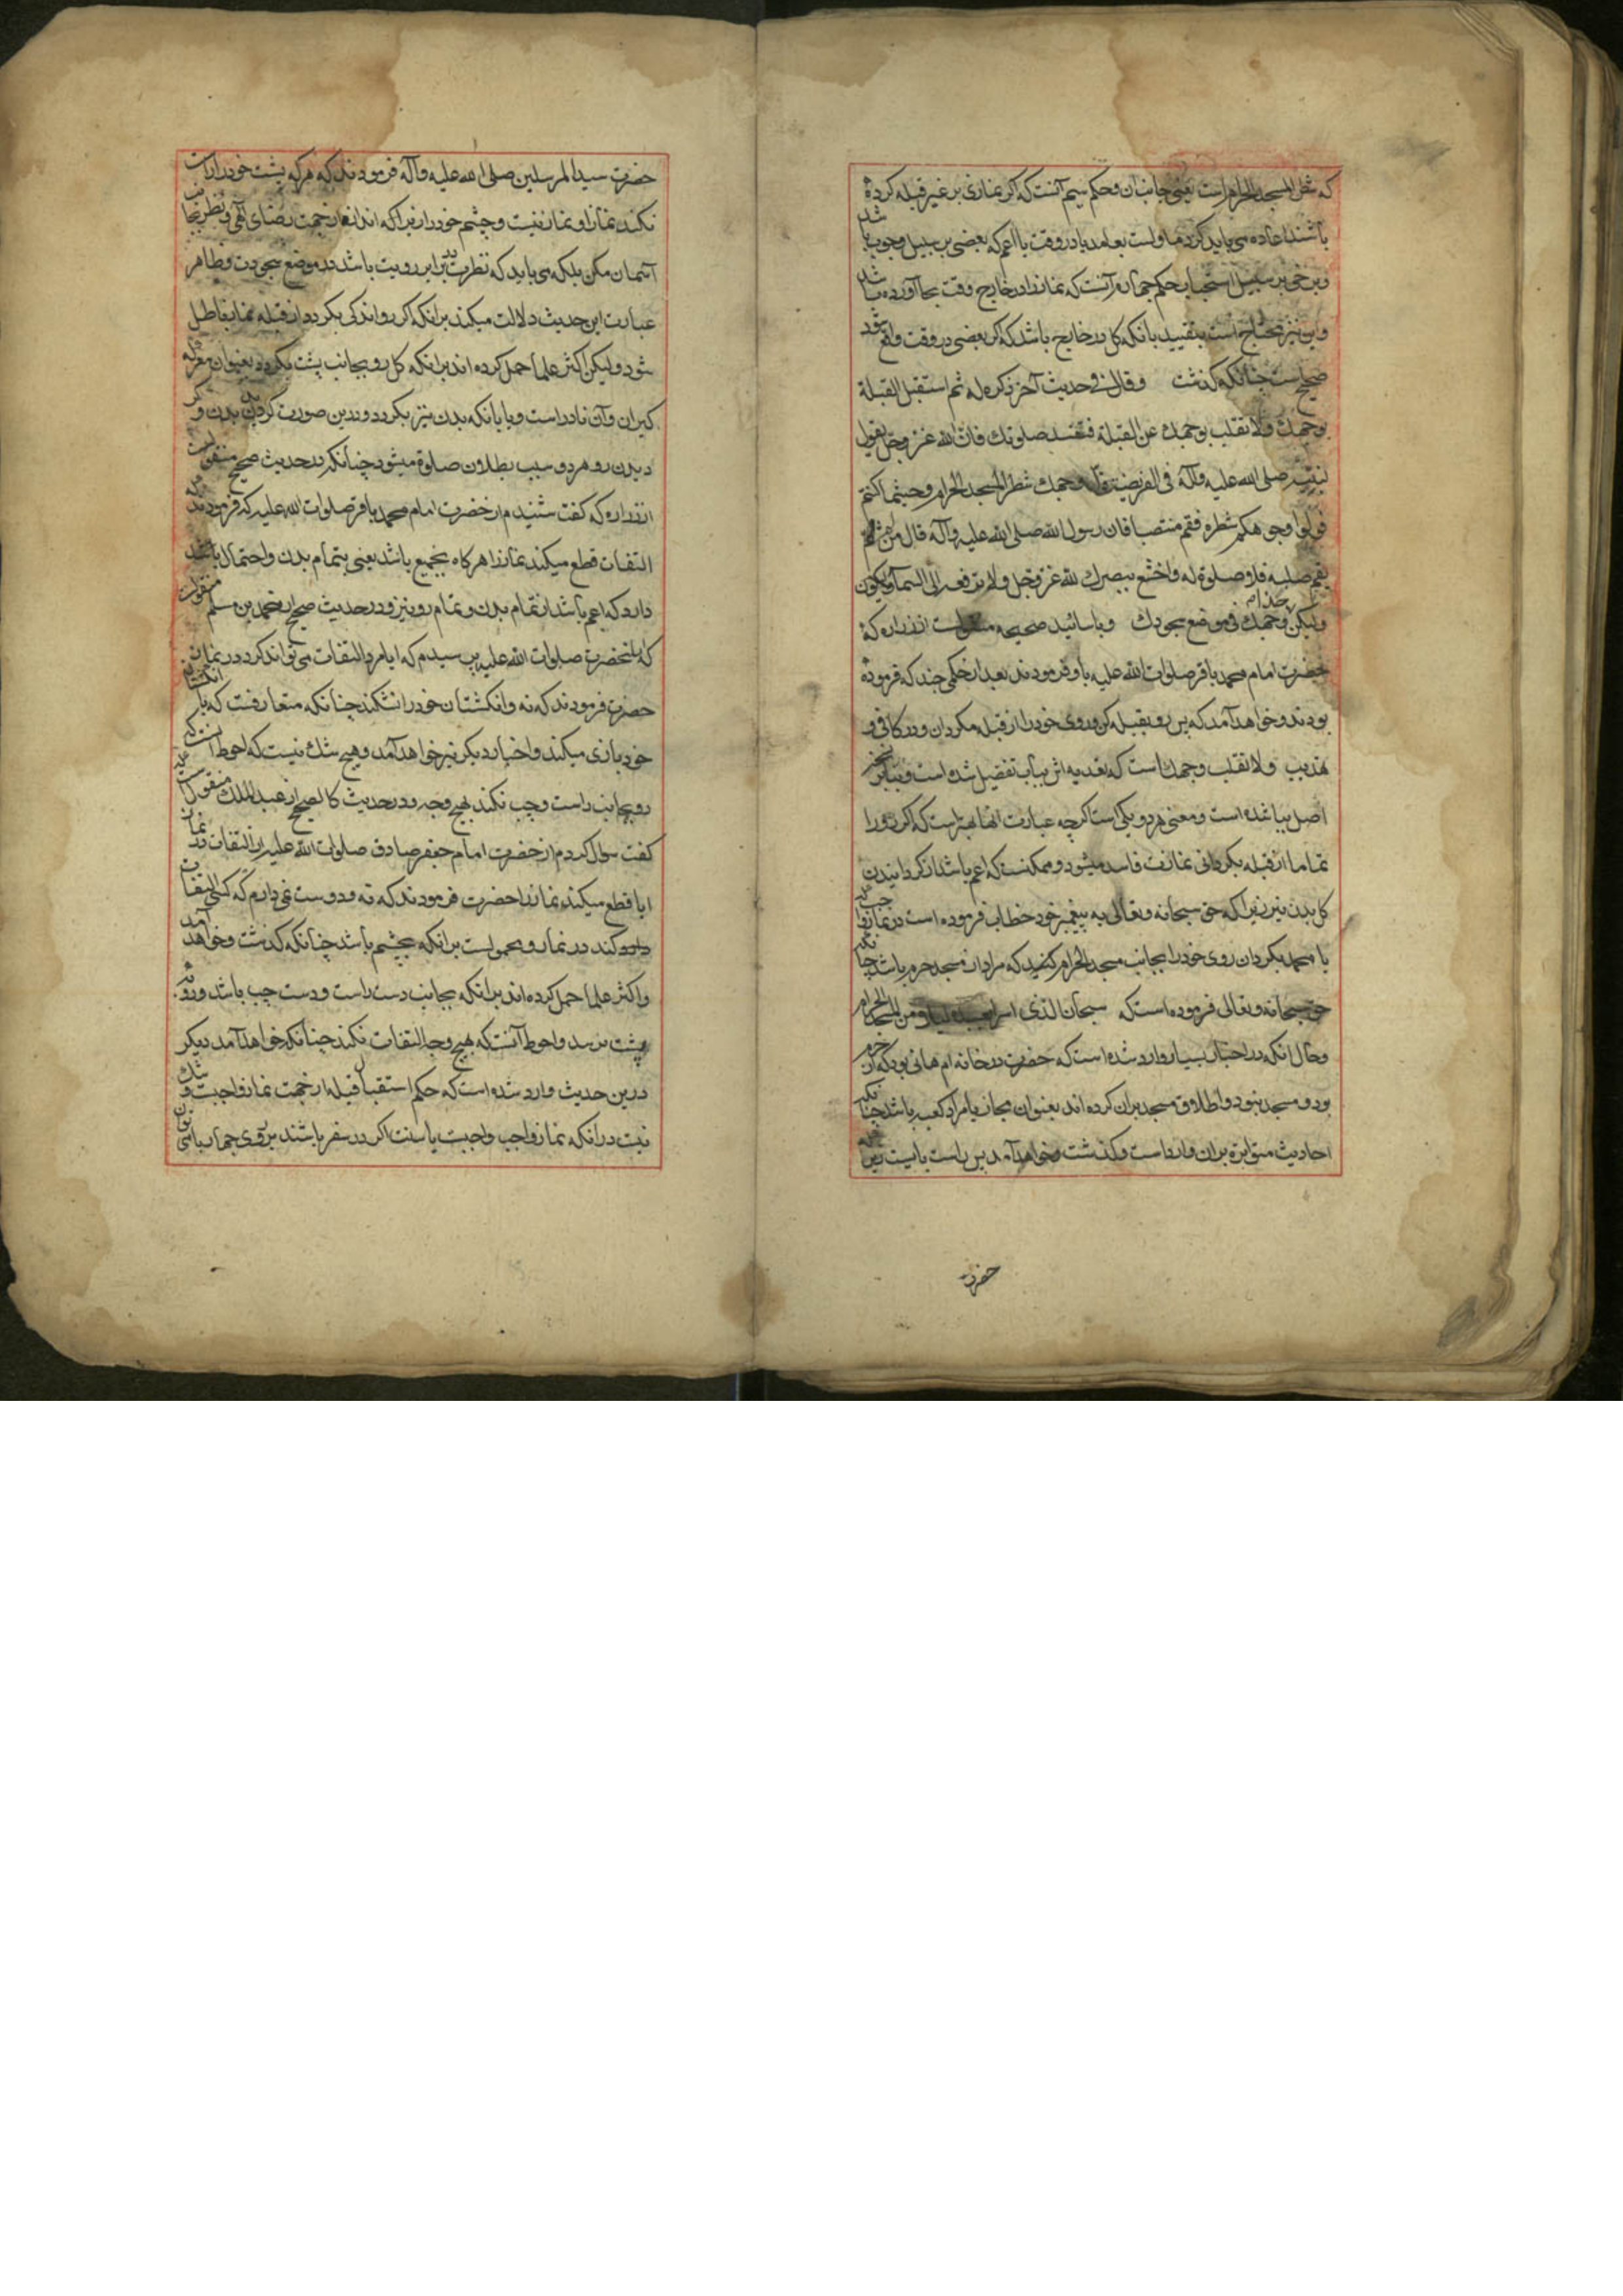 که شطر المسجد الحرام است یعنی جانب آن و حکم سیم آنست که اگر نمازی بر غیر قبله کرده
باشند اعاده می باید کرد در وقت یا اعم که بعضی بر سبیل وجوب باشد
و برخی بر سبیل استحباب حکم چهارم آنست که نماز را در خارج وقت بجا آورده باشد
و این نیز محتاج است بتقیید بانکه کل در خارج باشد که اگر بعضی در وقت واقع شود
صحیح است چنانکه گذشت وقال فی حدیث آخر ذکره له ثم استقبل القبلة
بوجهک ولا تقلب بوجهک عن القبلة فتفسد صلوتک فان الله عز وجل یقول
لنبیه صلی الله علیه وآله فی الفریضة فول وجهک شطر المسجد الحرام وحیثما کنتم
فولوا وجوهکم شطره فقم منتصبا فان رسول الله صلی الله علیه وآله قال من لم
یقم صلبه فلا صلوة له واخشع ببصرک لله عز وجل ولا ترفعه الی السماء ولیکن
حذاء وجهک فی موضع سجودک و باسانید صحیحه منقولست از زراره که
حضرت امام محمد باقر صلوات الله علیه باو فرمودند بعد از حکمی چند که فرموده
بودند و خواهد آمد که پس رو بقبله کن و روی خود را از قبله مگردان و در کافی و
تهذیب ولا تقلب وجهک است که تعدیه اش بباب تفعیل شده است و بنابر نسخه
اصل ببا شده است و معنی هر دو یکی است اگر چه عبارت انها بهتر است که اگر رو را
تماما از قبله بگردانی نمازت فاسد میشود و ممکنست که اعم باشد از گردانیدن
کل بدن نیز زیرا که حق سبحانه و تعالی به پیغمبر خود خطاب فرموده است در نماز واجب که
یا محمد بگردان روی خود را بجانب مسجد الحرام کنید که مراد از مسجد حرم باشد چنانکه
حق سبحانه و تعالی فرموده است که سبحان الذی اسری بعبده لیلا من المسجد الحرام
و حال انکه در اخبار بسیار وارد شده است که حضرت در خانه ام هانی بود که از حرم
بود و مسجد نبود و اطلاق مسجد بران کرده اند بعنوان مجاز یا مراد کعبه باشد چنانکه
احادیث متواتره بران وارد است و گذشت و خواهد آمد پس راست بایست زیرا که
حضرت
حضرت سید المرسلین صلی الله علیه وآله فرمودند که هر که پشت خود را راست
نکند نماز او نماز نیست و چشم خود را زیر از جهت رضای الهی و نظر بجانب
آسمان مکن بلکه می باید که نظرت برابر رویت باشد در موضع سجودت و ظاهر
عبارت این حدیث دلالت میکند برانکه اگر رو اندکی بگردد از قبله نماز باطل
شود ولیکن اکثر علما حمل کرده اند برانکه کل رو بجانب پشت بگردد بعنوان معرکه
گیران و آن نادر است و یا بانکه بدن نیز بگردد و درین صورت گردیدن بدن و گر
دیدن رو هر دو سبب بطلان صلوة میشود چنانکه در حدیث صحیح منقولست
از زراره که گفت شنیدم از حضرت امام محمد باقر صلوات الله علیه که فرمودند که
التفات قطع میکند نماز را هر گاه بجمیع باشد یعنی بتمام بدن و احتمال
دارد که اعم باشد از تمام بدن و تمام رو نیز و در حدیث صحیح از محمد بن مسلم منقولست
که از حضرت صلوات الله علیه پرسیدم که ایا مرد التفات می تواند کرد در نماز
حضرت فرمودند که نه و انگشتان خود را نشکند چنانکه متعارفست که با انگشتان
خود بازی میکند و اخبار دیگر نیز خواهد آمد و هیچ شک نیست که احوط آنست که
رو بجانب راست و چپ نکند بهیچ وجه و در حدیث کالصحیح از عبد الملک منقولست که
گفت سؤال کردم از حضرت امام جعفر صادق صلوات الله علیه از التفات در نماز
ایا قطع میکند نماز را حضرت فرمودند که نه و دوست نمی دارم که کسی التفات
کند در نماز و محمولست برانکه بچشم باشد چنانکه گذشت و خواهد آمد
و اکثر علما حمل کرده اند برانکه بجانب دست راست و دست چپ باشد و رو به
پشت نرسد و احوط آنست که بهیچ وجه التفات نکند چنانکه خواهد آمد دیگر
درین حدیث وارد شده است که حکم استقبال قبله از جهت نماز واجبست و شک
نیست درانکه نماز واجب واجبست یا سنت اگر در سفر باشند بر روی چهارپا می توان